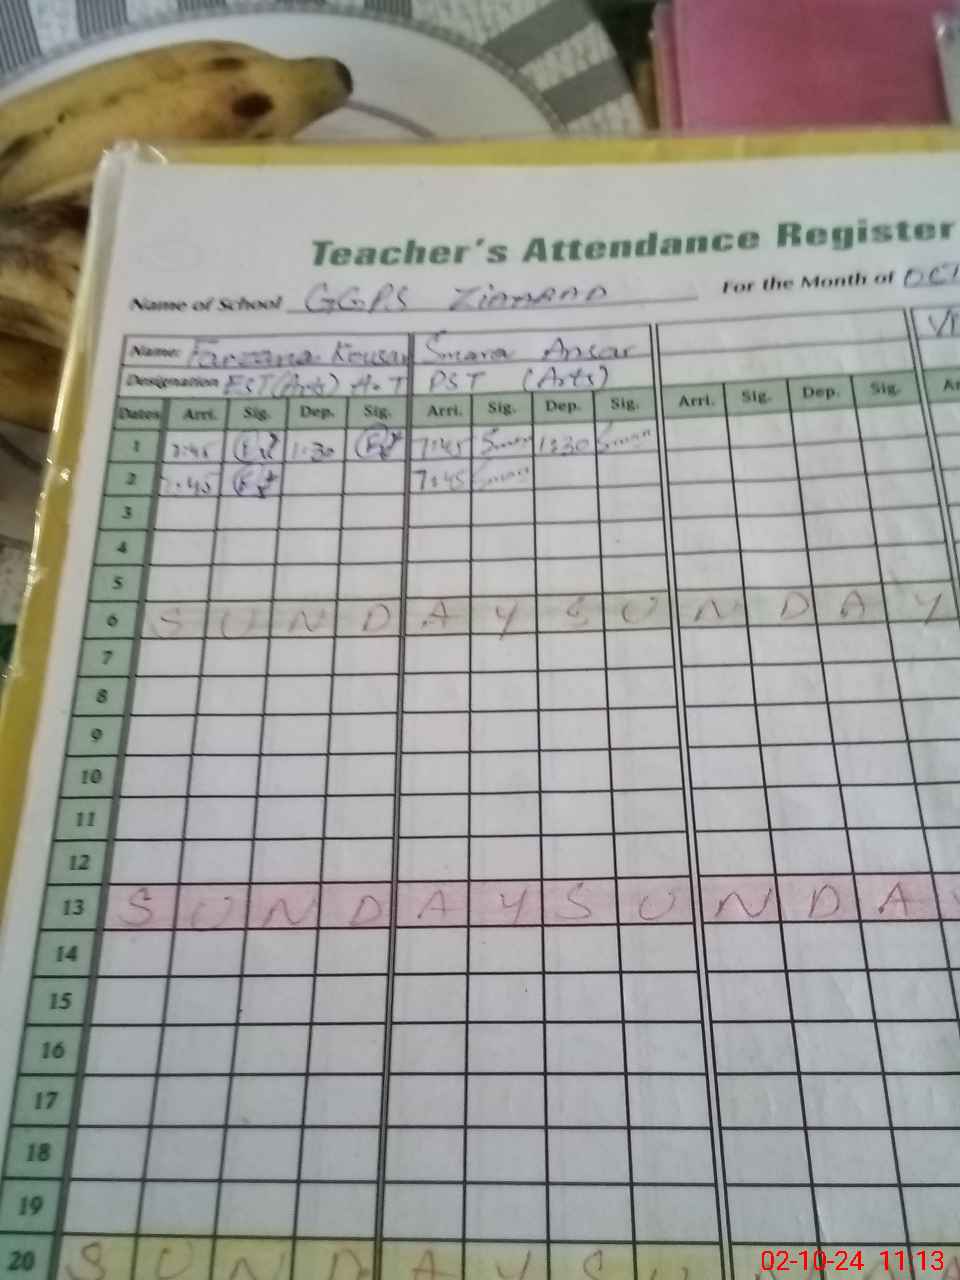 Teacher's Attendance Register
Name of School GGPS For the Month of OCT
Name: Farzana Kousar Smara Ansar
Designation EST (Arts) H.T PST (Arts)
Dates Arri. Sig. Dep. Sig. Arri. Sig. Dep. Sig. Arri. Sig. Dep. Sig.
1 7:45 1:30 7:45 1:30
2 7:45 7:45
3
4
5
6 S U N D A Y S U N D A Y
7
8
9
10
11
12
13 S U N D A Y S U N D A
14
15
16
17
18
19
20 S U N D A Y S U
02-10-24 11:13